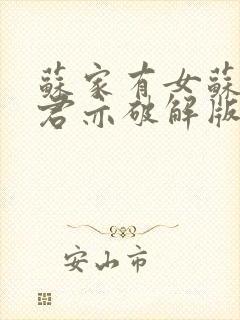 蘇家有女蘇
君亦破解版
安山市